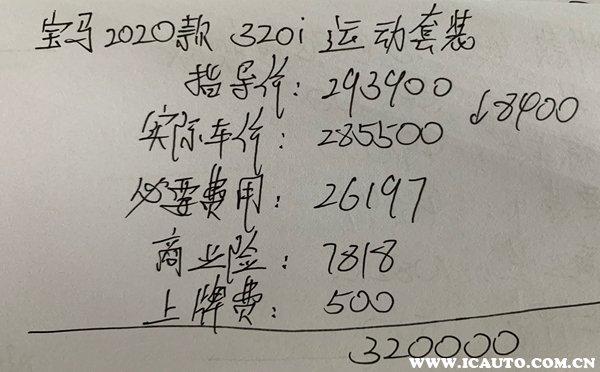 宝马2020款 320i 运动套装
指导价：293900 ↓8400
实际车价：285500
必要费用：26197
商业险：7818
上牌费：500
320000
WWW.ICAUTO.COM.CN